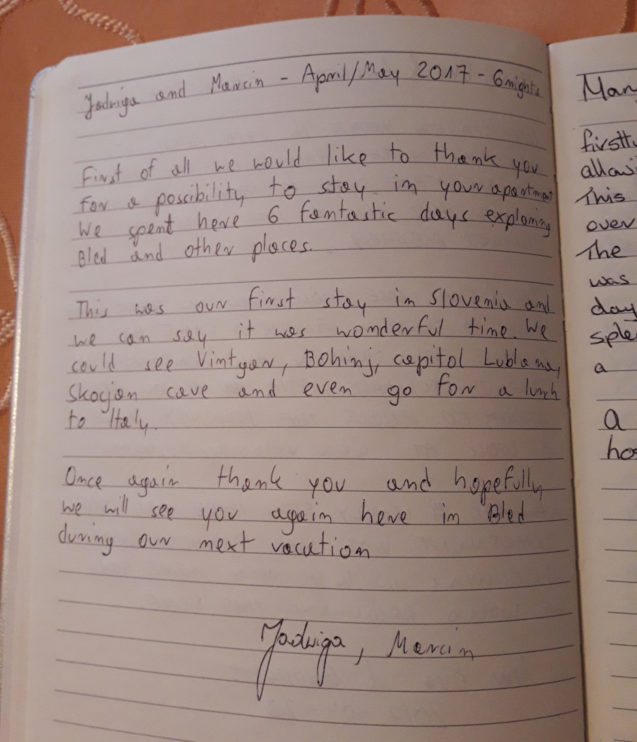 Jadwiga and Marcin - April/May 2017 - 6 nights
First of all we would like to thank you
for a possibility to stay in your apartment
We spent here 6 fantastic days exploring
Bled and other places.
This was our first stay in Slovenia and
we can say it was wonderful time. We
could see Vintgar, Bohinj, capitol Lublana,
Skocjan cave and even go for a lunch
to Italy.
Once again thank you and hopefully
we will see you again here in Bled
during our next vacution
Jadwiga, Marcin
Man
firstl
allowi
This
over
The
was
day
sple
a
a
hos